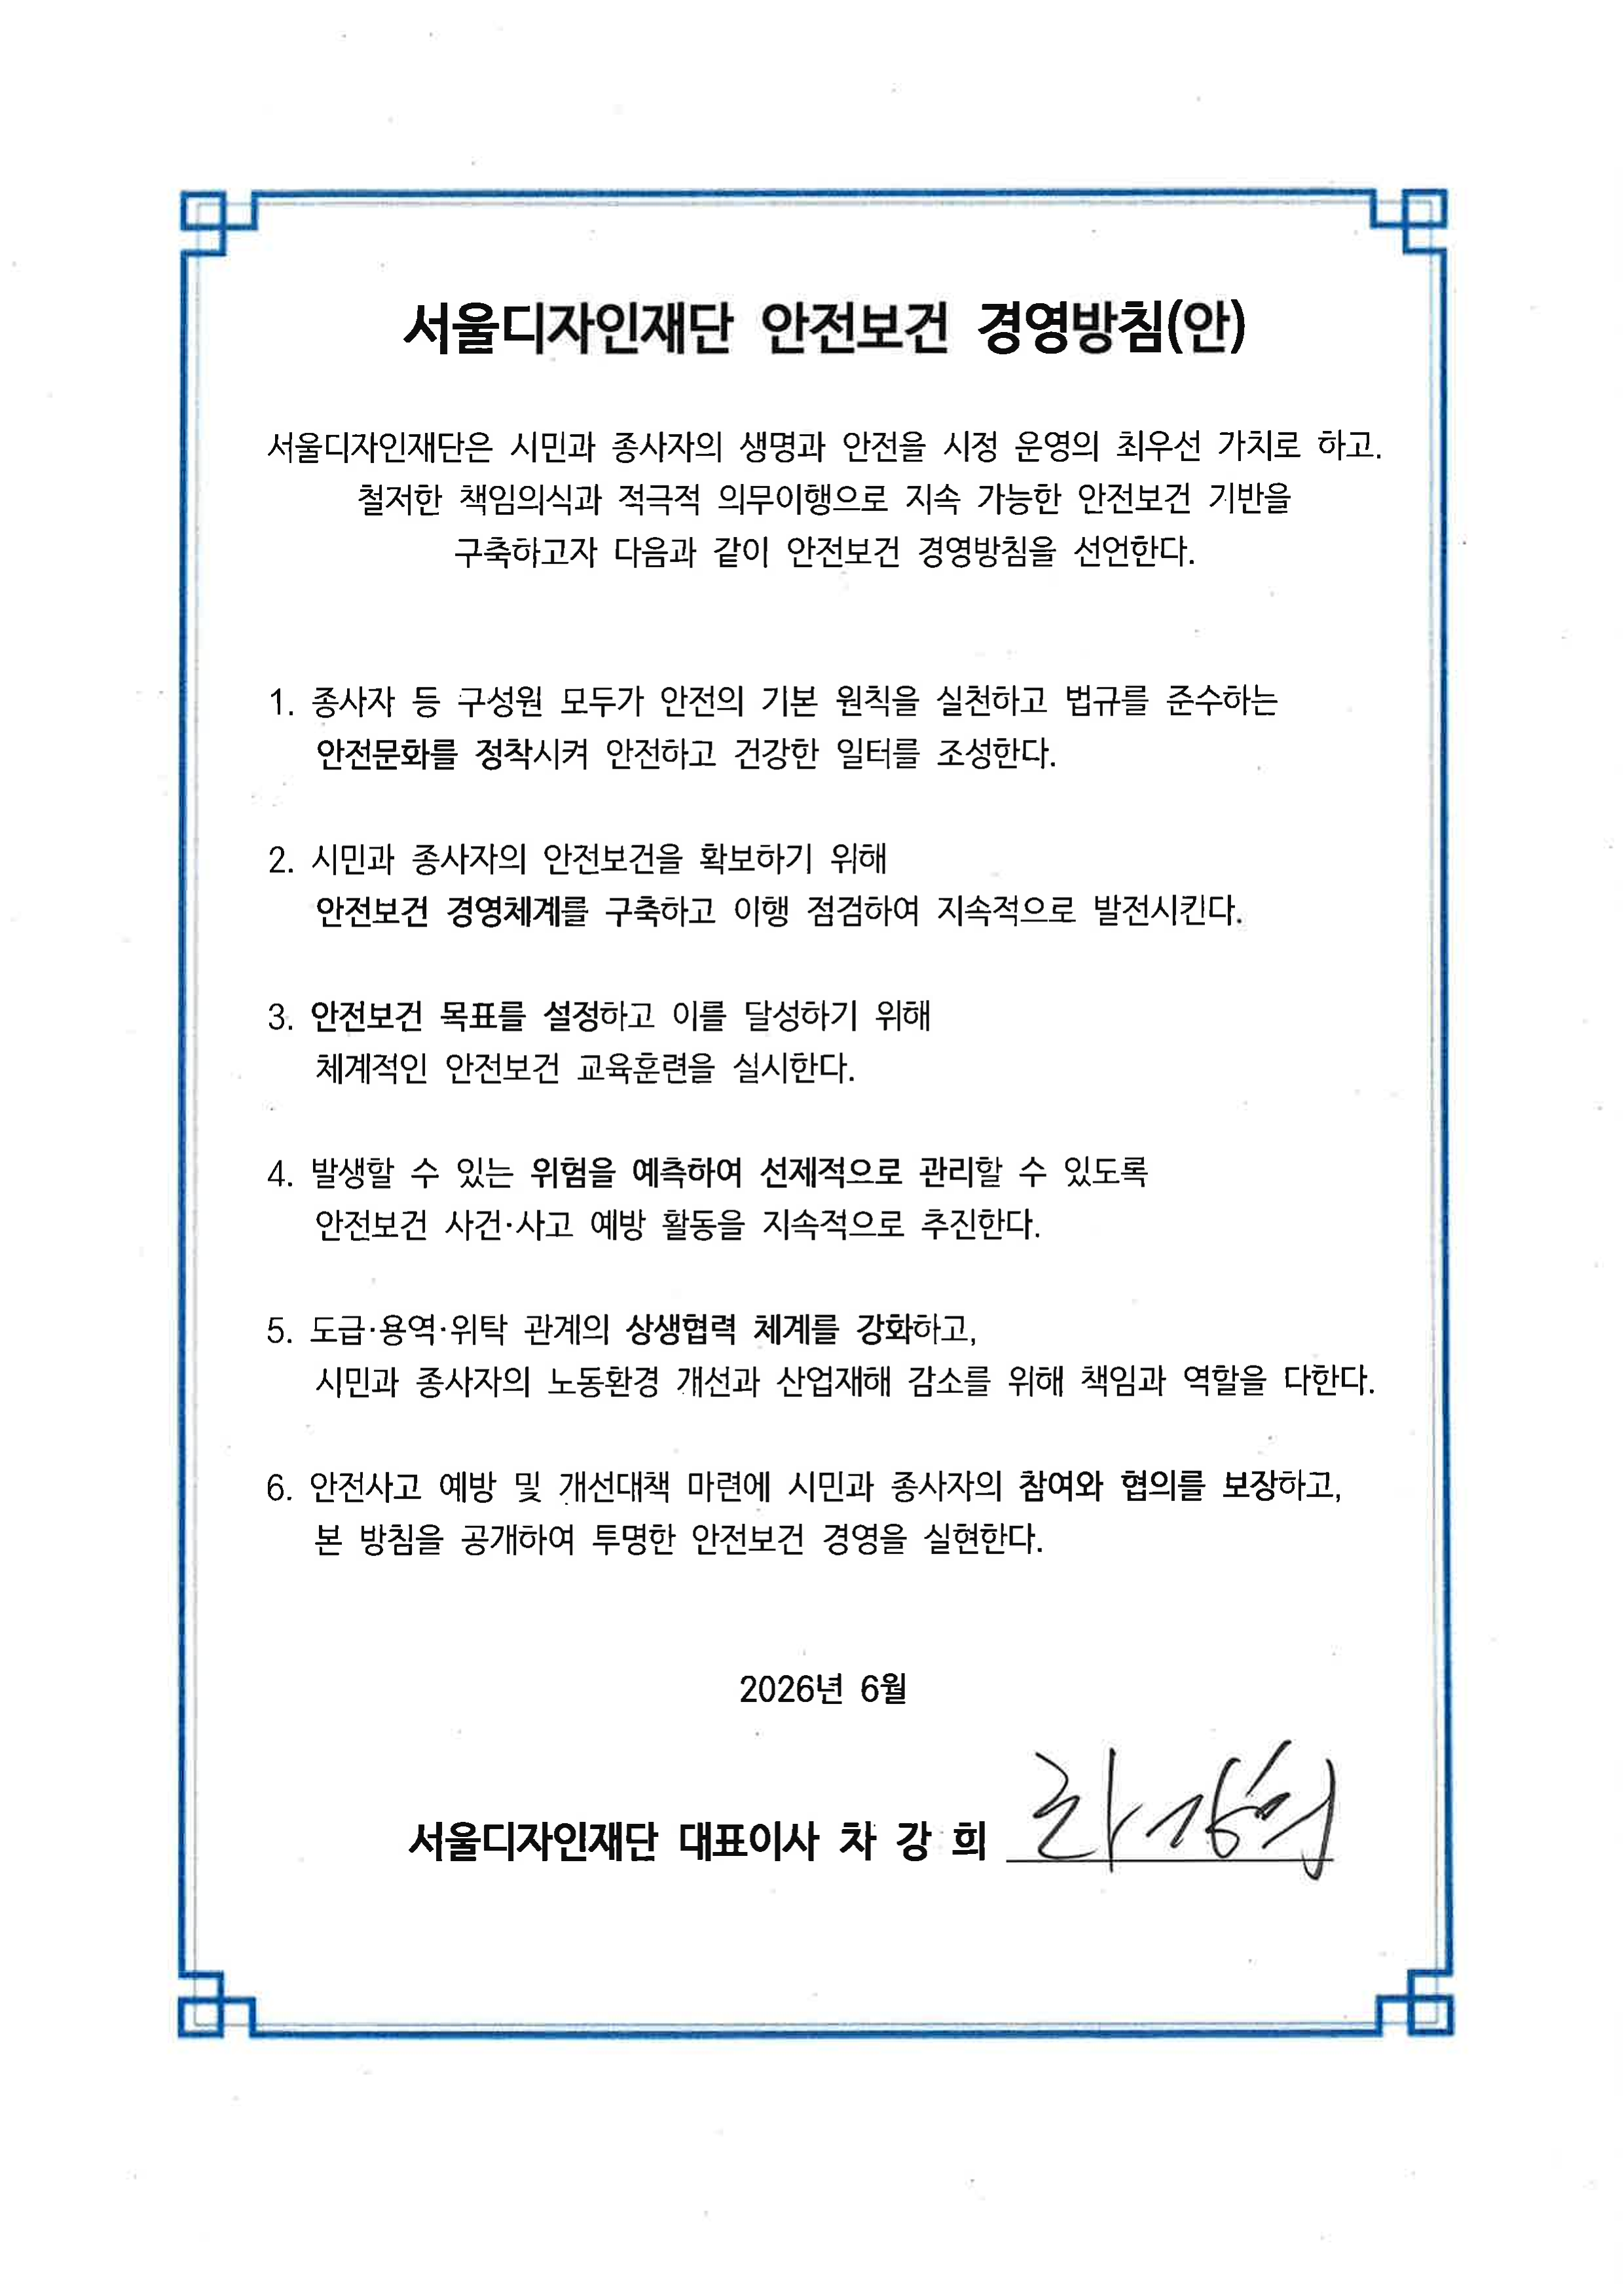 서울디자인재단 안전보건 경영방침(안)
서울디자인재단은 시민과 종사자의 생명과 안전을 시정 운영의 최우선 가치로 하고.
철저한 책임의식과 적극적 의무이행으로 지속 가능한 안전보건 기반을
구축하고자 다음과 같이 안전보건 경영방침을 선언한다.
1. 종사자 등 구성원 모두가 안전의 기본 원칙을 실천하고 법규를 준수하는
안전문화를 정착시켜 안전하고 건강한 일터를 조성한다.
2. 시민과 종사자의 안전보건을 확보하기 위해
안전보건 경영체계를 구축하고 이행 점검하여 지속적으로 발전시킨다.
3. 안전보건 목표를 설정하고 이를 달성하기 위해
체계적인 안전보건 교육훈련을 실시한다.
4. 발생할 수 있는 위험을 예측하여 선제적으로 관리할 수 있도록
안전보건 사건·사고 예방 활동을 지속적으로 추진한다.
5. 도급·용역·위탁 관계의 상생협력 체계를 강화하고,
시민과 종사자의 노동환경 개선과 산업재해 감소를 위해 책임과 역할을 다한다.
6. 안전사고 예방 및 개선대책 마련에 시민과 종사자의 참여와 협의를 보장하고,
본 방침을 공개하여 투명한 안전보건 경영을 실현한다.
2026년 6월
서울디자인재단 대표이사 차 강 희